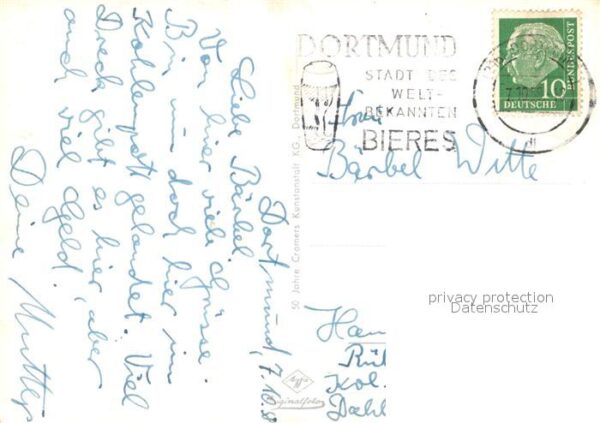 Dortmund, 7.10.
Liebe Bärbel
Von hier viele Grüsse.
Bin nun doch hier im
Kohlenpott gelandet. Viel
Dreck gibt es hier, aber
auch viel Geld.
Deine Mutti
50 Jahre Cramers Kunstanstalt KG., Dortmund
Agfa
Originalfoto
DORTMUND
STADT DES
WELT-
BEKANNTEN
BIERES
10
DEUTSCHE
BUNDESPOST
Bärbel Witte
Han
Rüt
Kol.
Dahl
privacy protection
Datenschutz